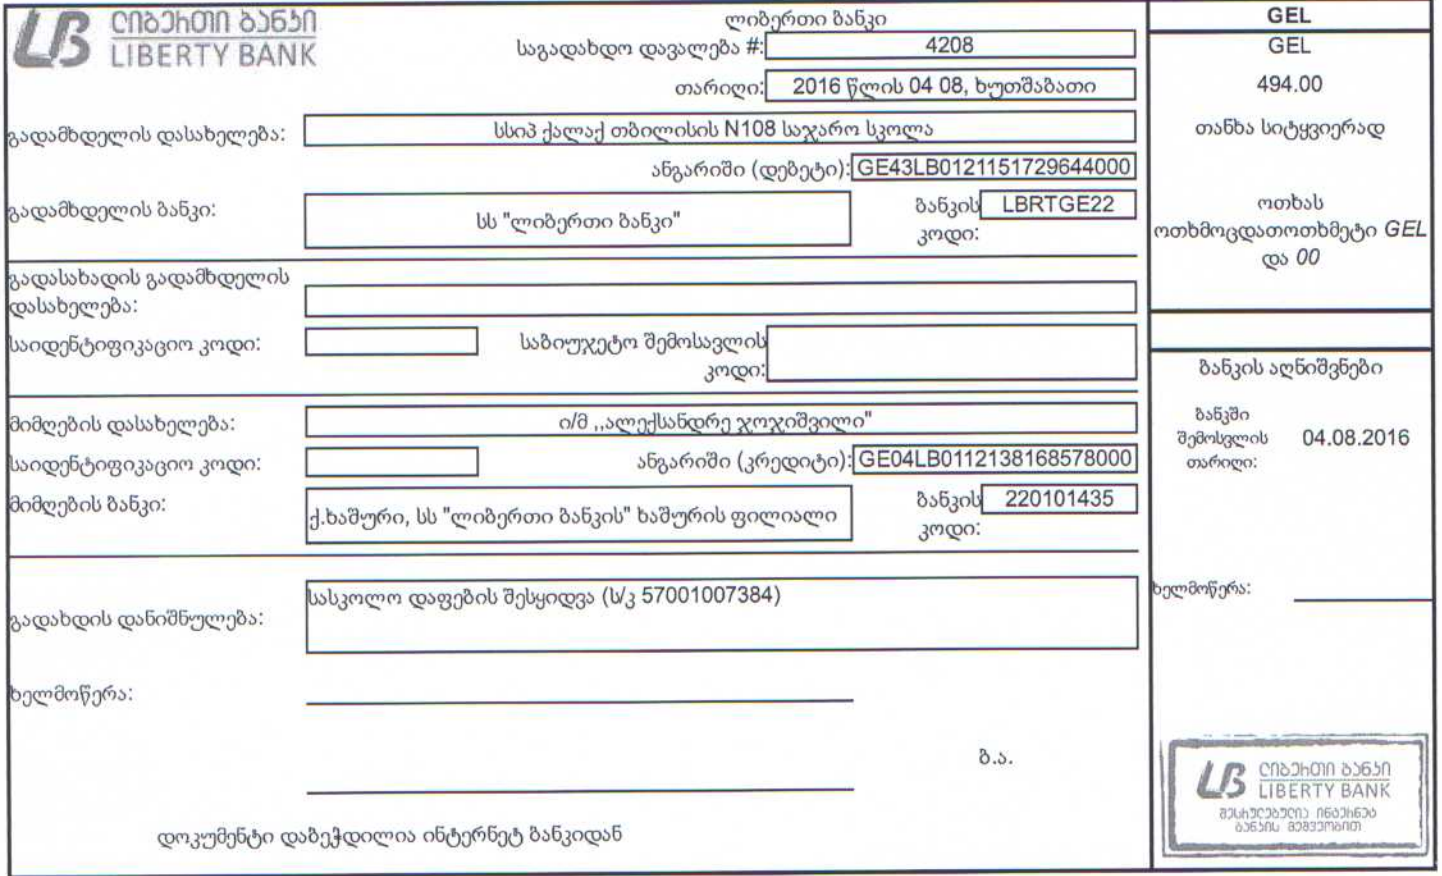 ლიბერთი ბანკი
LIBERTY BANK
ლიბერთი ბანკი
საგადახდო დავალება #: 4208
თარიღი: 2016 წლის 04 08, ხუთშაბათი
გადამხდელის დასახელება: სსიპ ქალაქ თბილისის N108 საჯარო სკოლა
ანგარიში (დებეტი): GE43LB0121151729644000
გადამხდელის ბანკი: სს "ლიბერთი ბანკი" ბანკის კოდი: LBRTGE22
გადასახადის გადამხდელის
დასახელება:
საიდენტიფიკაციო კოდი: საბიუჯეტო შემოსავლის
კოდი:
მიმღების დასახელება: ი/მ ,,ალექსანდრე ჯოჯიშვილი"
საიდენტიფიკაციო კოდი: ანგარიში (კრედიტი): GE04LB0112138168578000
მიმღების ბანკი: ქ.ხაშური, სს "ლიბერთი ბანკის" ხაშურის ფილიალი ბანკის კოდი: 220101435
გადახდის დანიშნულება: სასკოლო დაფების შესყიდვა (ს/კ 57001007384)
ხელმოწერა:
ბ.ა.
დოკუმენტი დაბეჭდილია ინტერნეტ ბანკიდან
GEL
GEL
494.00
თანხა სიტყვიერად
ოთხას
ოთხმოცდათოთხმეტი GEL
და 00
ბანკის აღნიშვნები
ბანკში
შემოსვლის 04.08.2016
თარიღი:
ხელმოწერა:
ლიბერთი ბანკი
LIBERTY BANK
შესრულებულია ინტერნეტ
ბანკის მეშვეობით